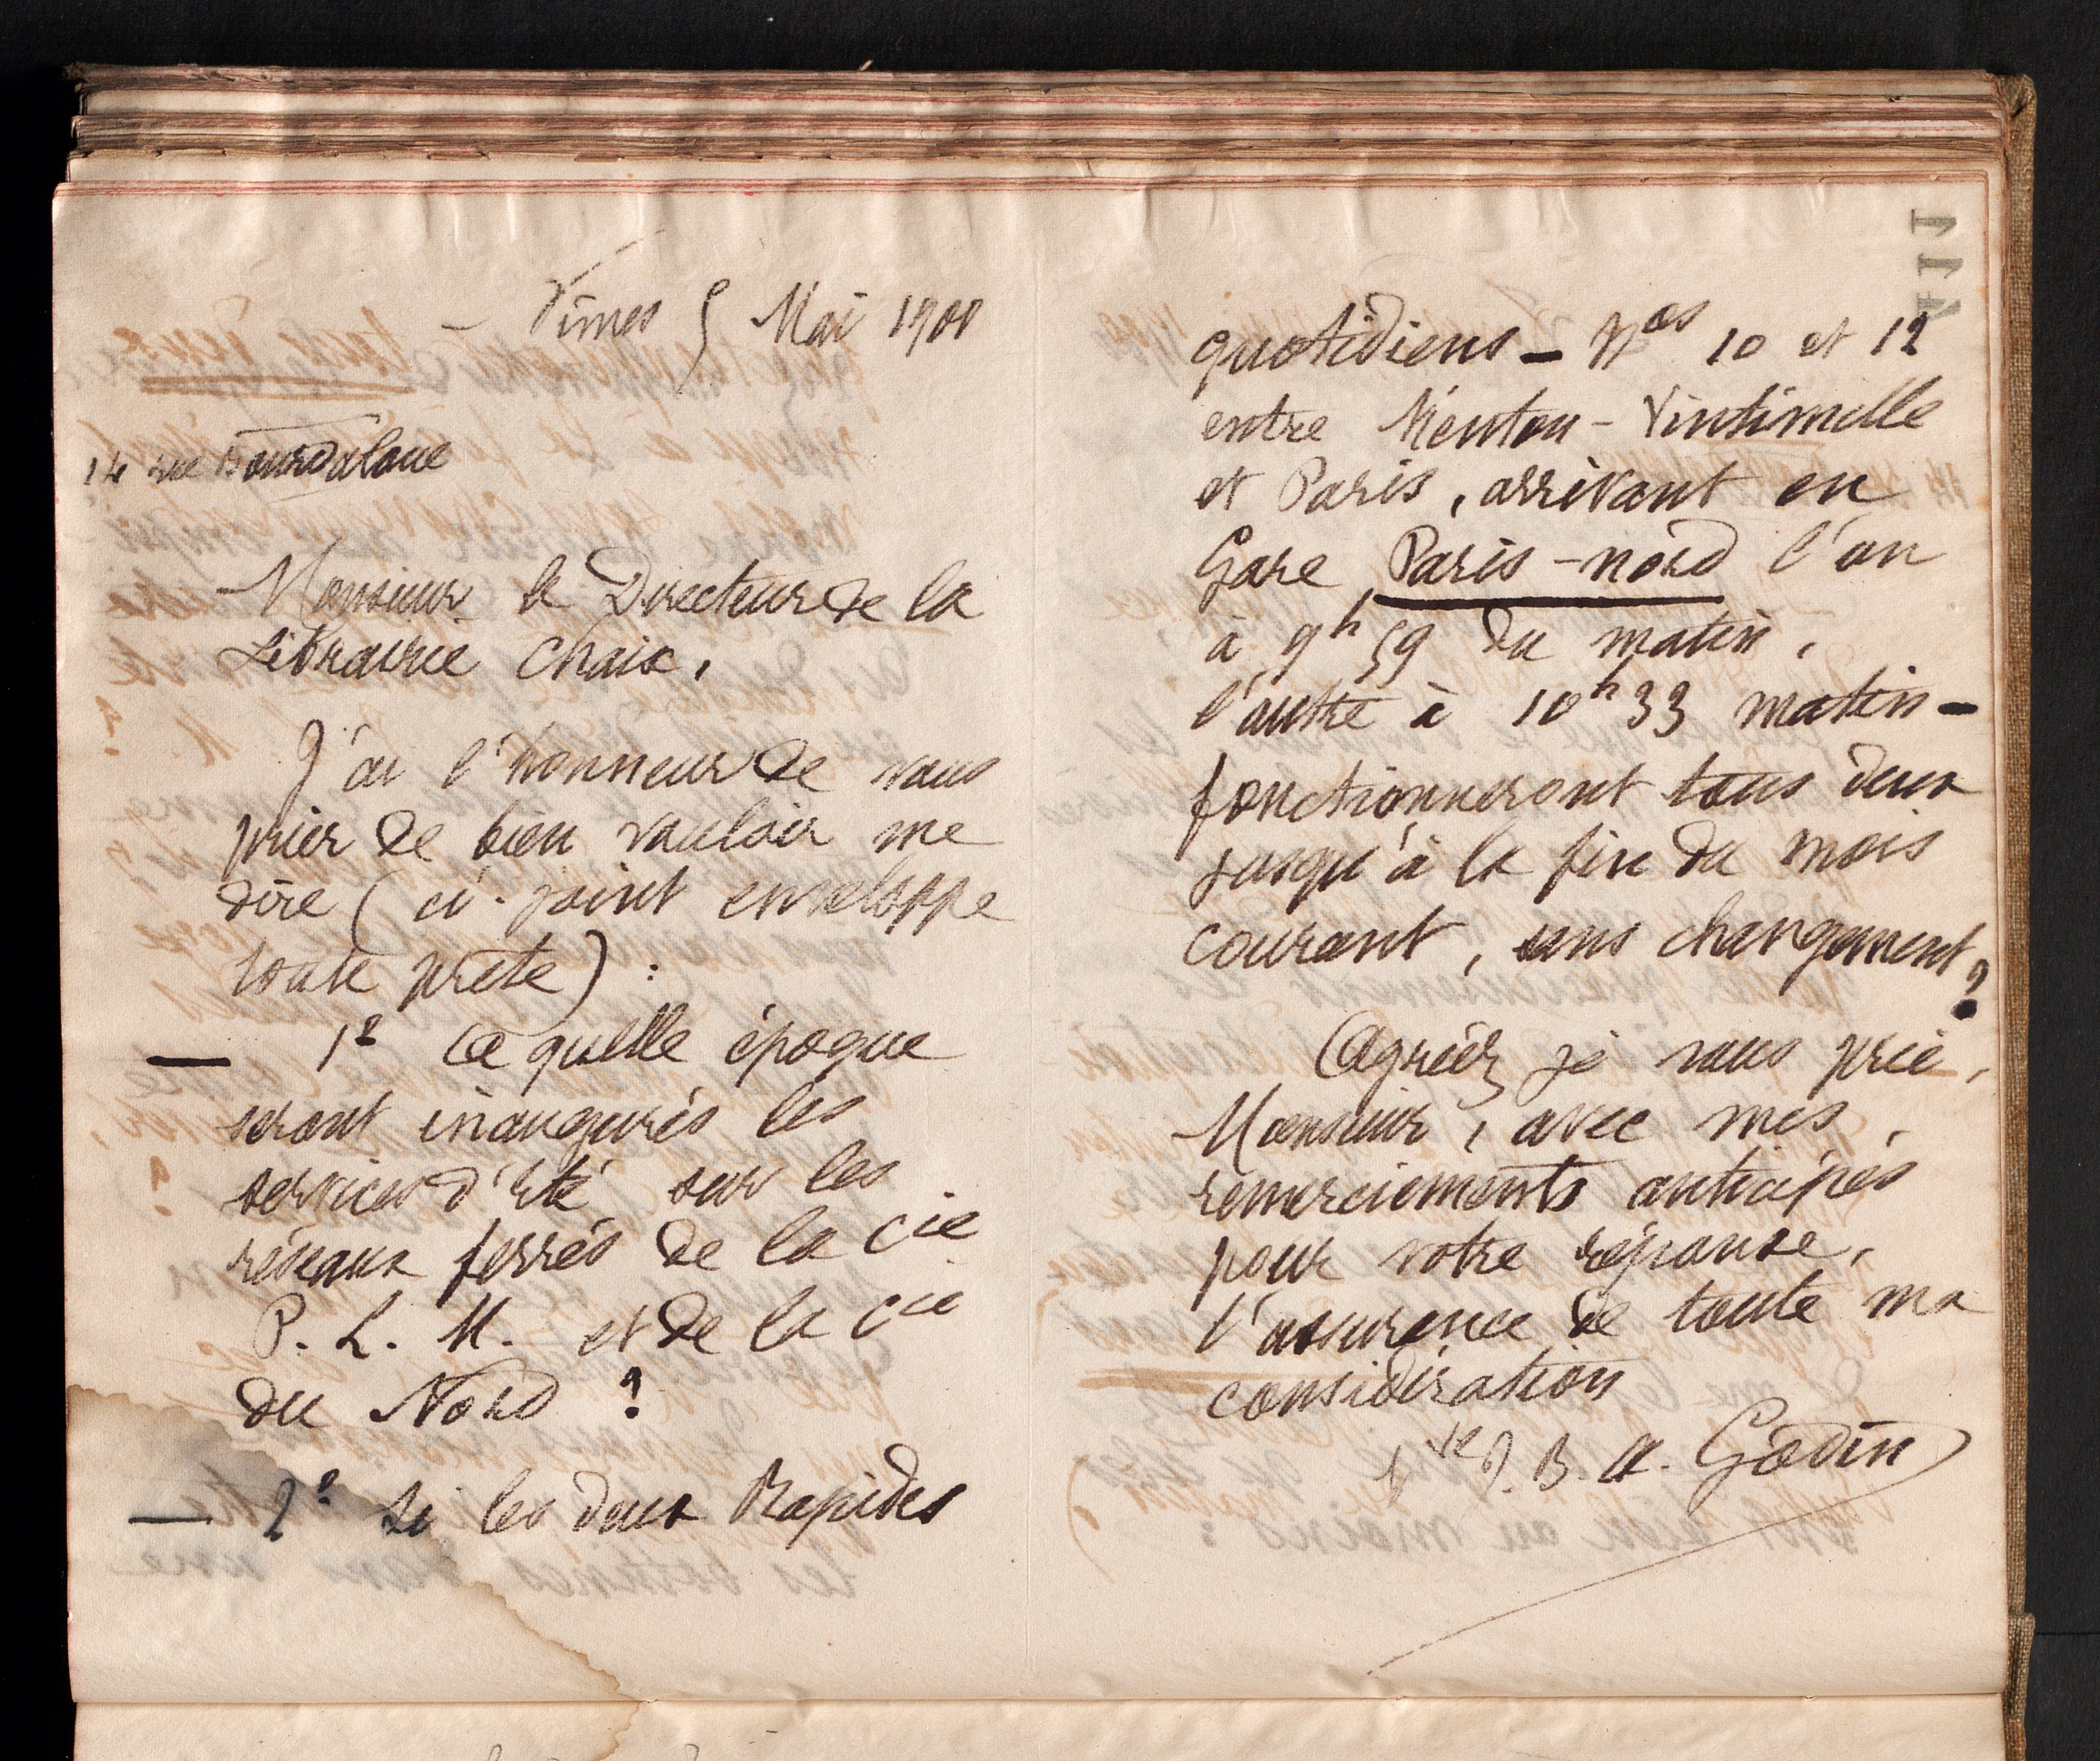 Nîmes 5 Mai 1900
14 rue Bourdaloue
Monsieur le Directeur de la
Librairie Chaix,
J'ai l'honneur de vous
prier de bien vouloir me
dire (ci-joint enveloppe
toute prête) :
— 1° à quelle époque
seront inaugurés les
services d'Eté sur les
réseaux ferrés de la Cie
P. L. M. et de la Cie
du Nord ?
— 2° Si les deux Rapides
quotidiens — Nos 10 et 12
entre Menton - Vintimille
et Paris, arrivant en
Gare Paris-nord l'un
à 9h 59 du matin,
l'autre à 10h 33 matin —
fonctionneront tous deux
jusqu'à la fin du mois
courant, sans changement ?
Agréez je vous prie,
Monsieur, avec mes
remerciements anticipés
pour votre réponse,
l'assurance de toute ma
considération
Vve J. B. A. Godin